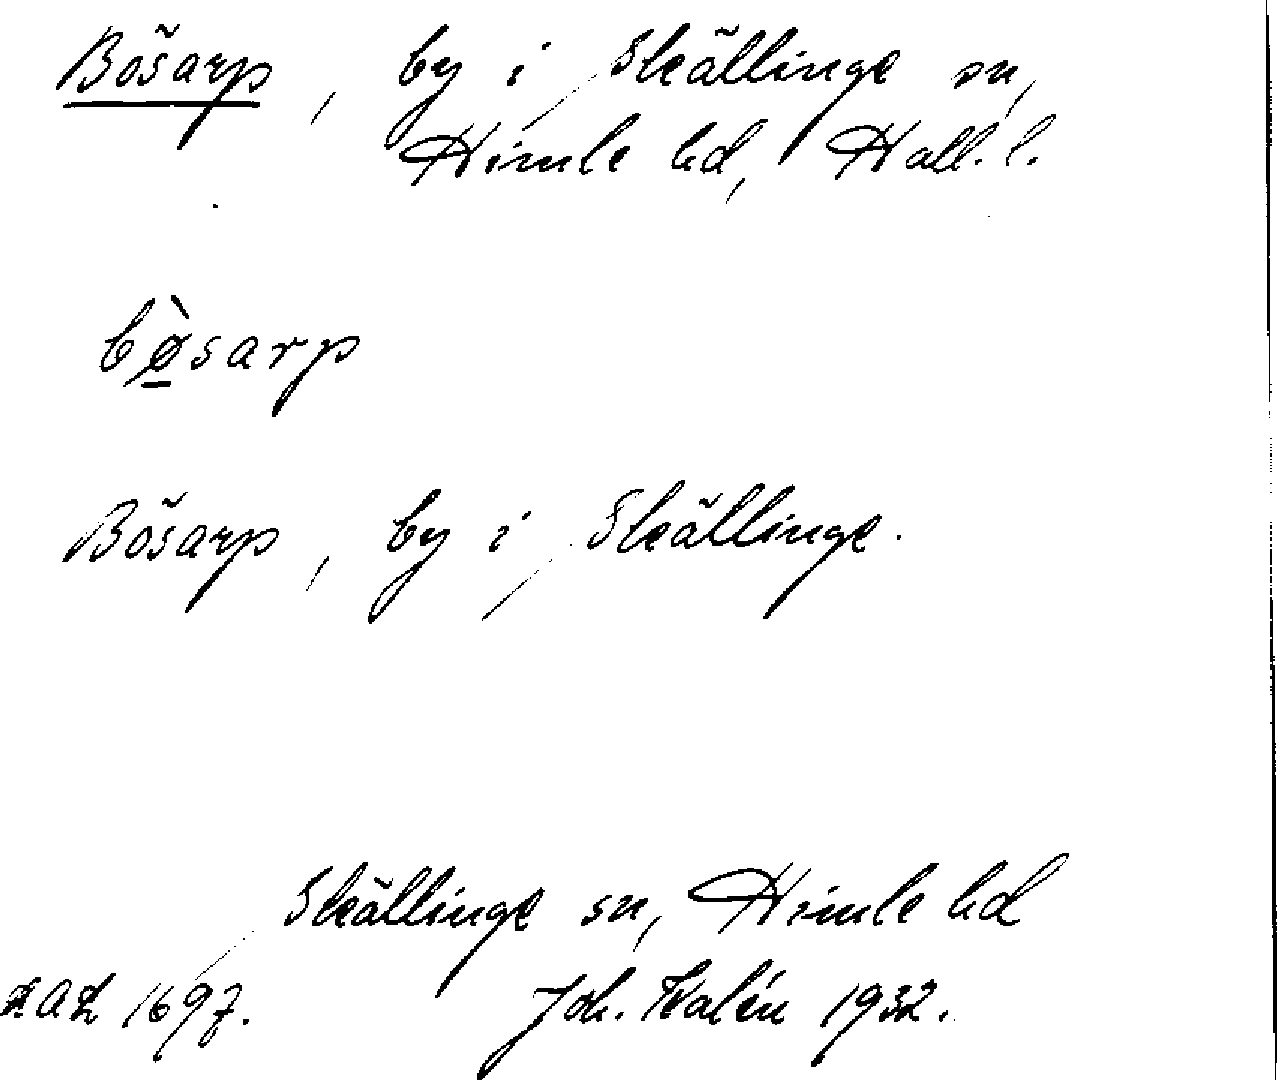 Bösarp, by i Skällinge sn,
Himle hd, Hall. l.
bø̱̀sarp
Bösarp, by i Skällinge.
Skällinge sn, Himle hd
1697. Joh. Kalén 1932.